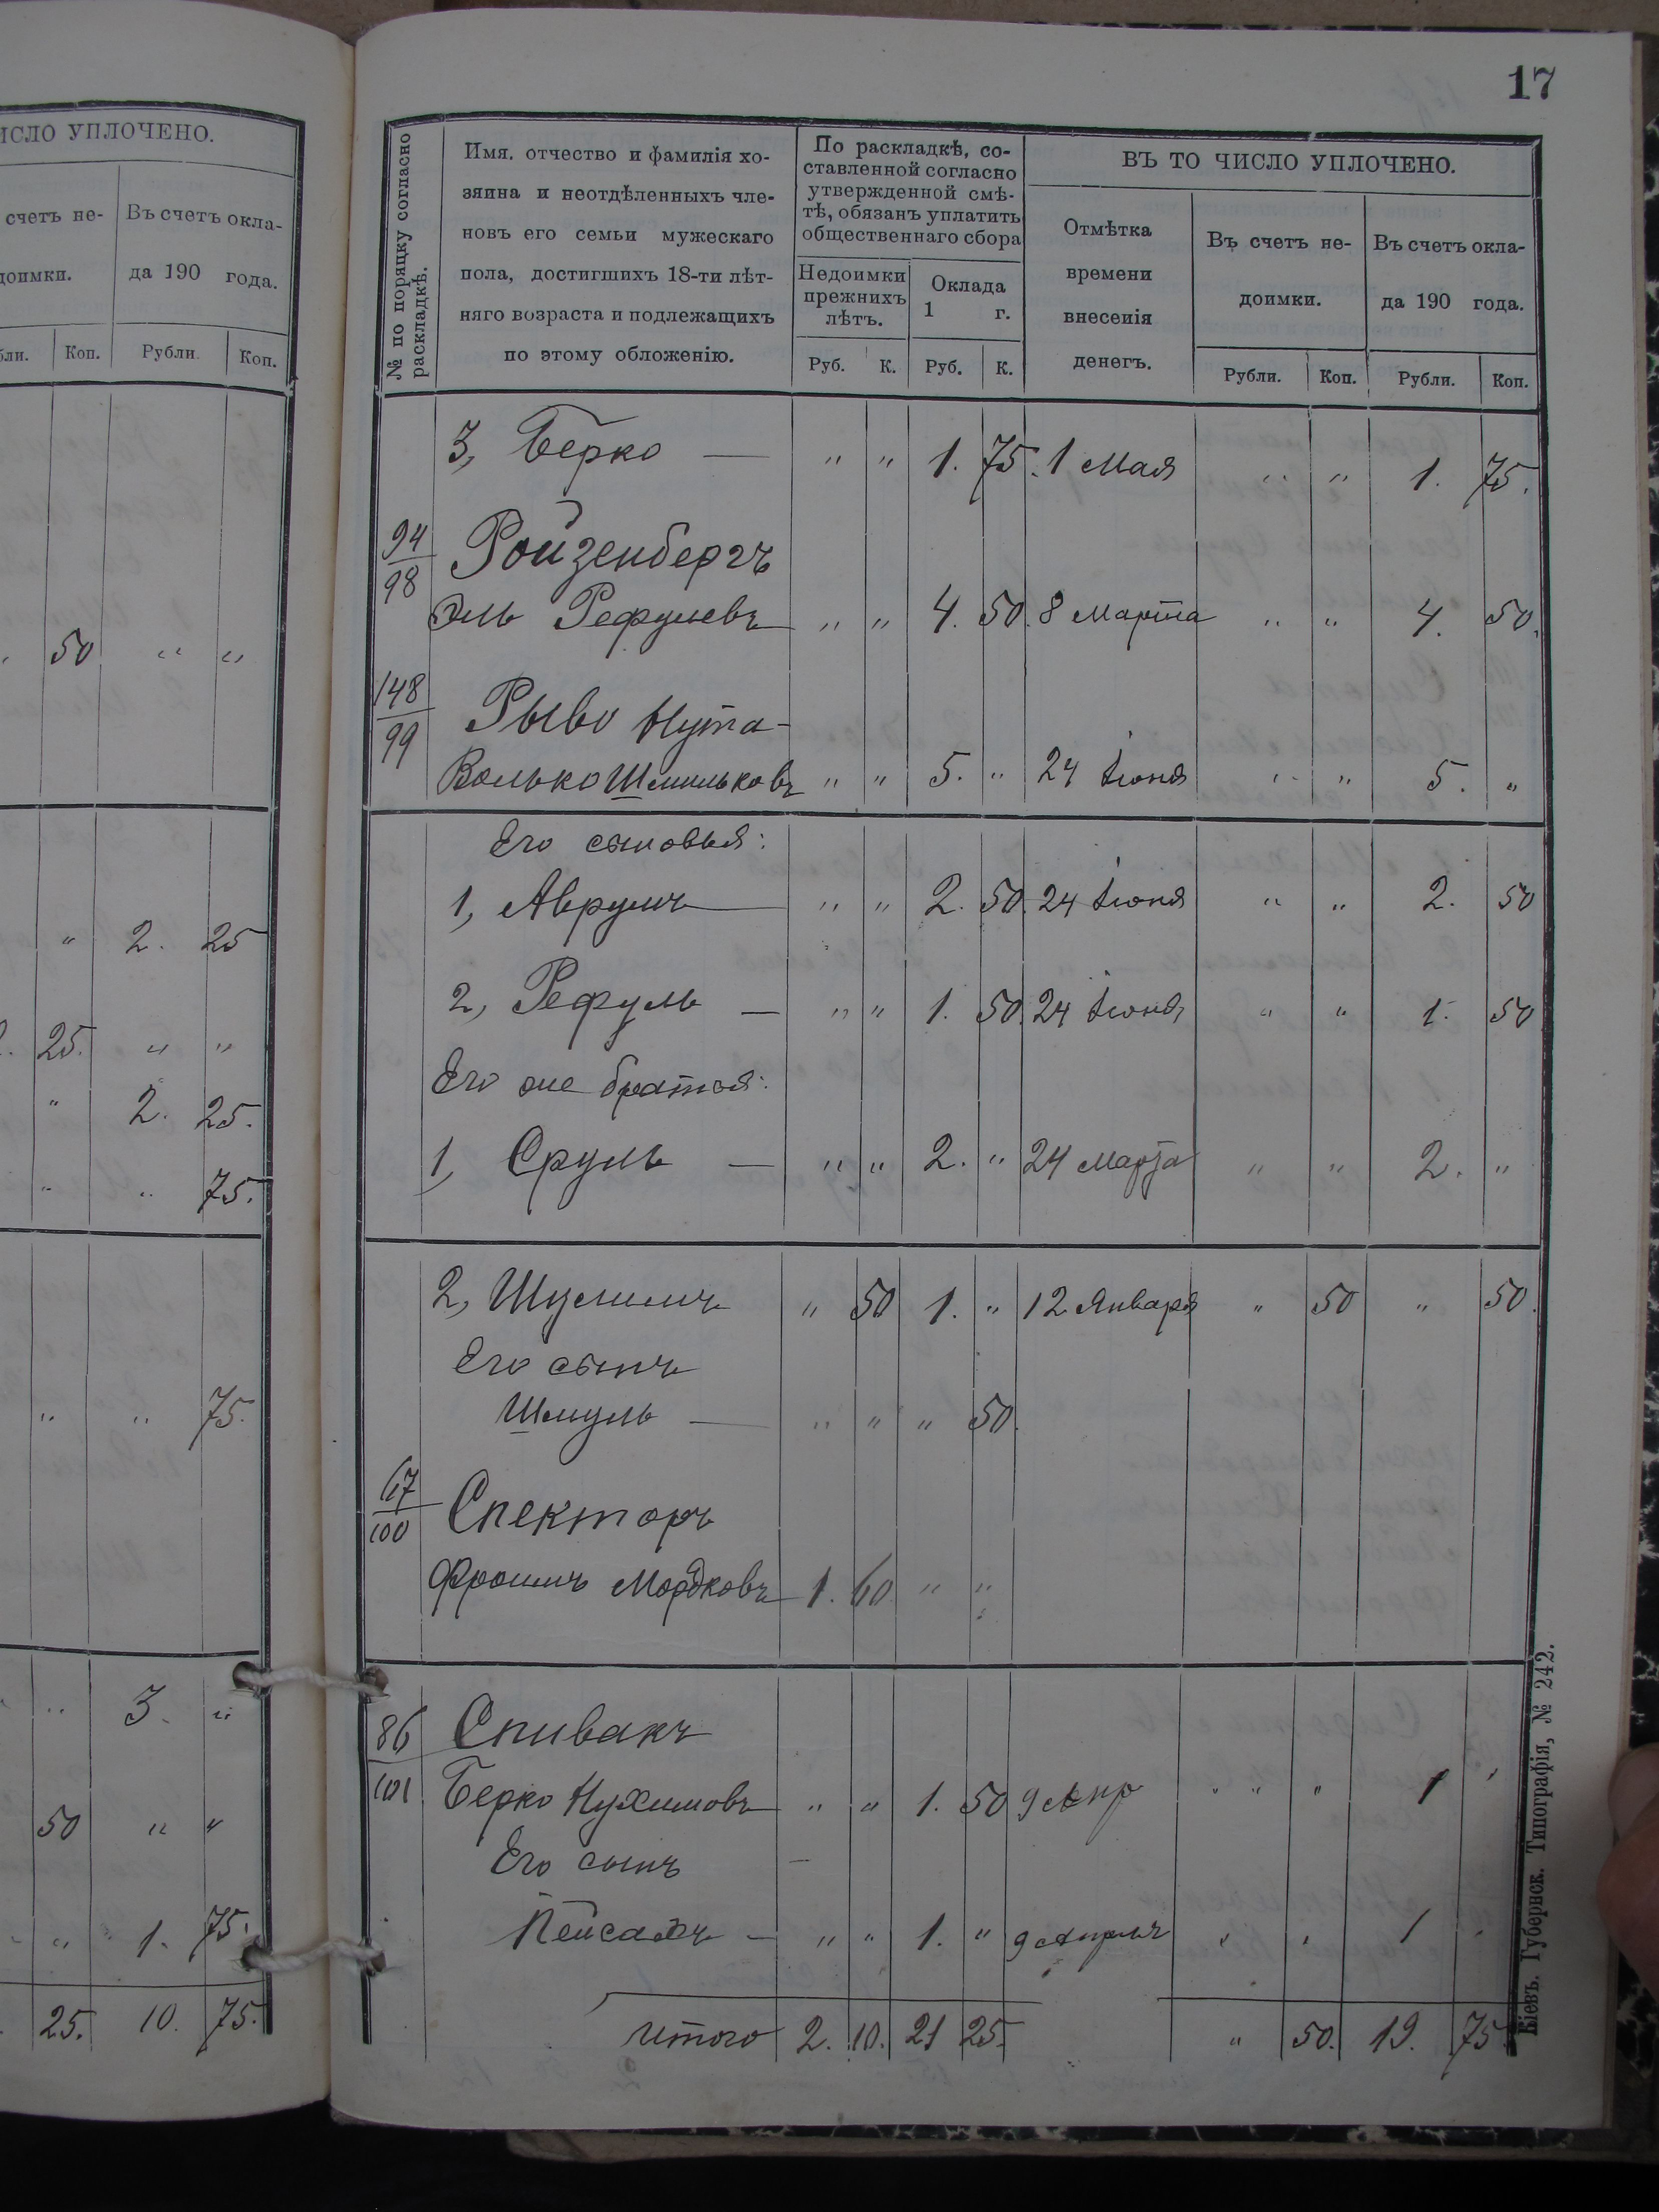 ИСЛО УПЛОЧЕНО.
счетъ не- Въ счетъ окла-
доимки. да 190 года.
бли. Коп. Рубли. Коп.
50 " "
" 2. 25
25. " "
" 2. 25.
" " 75.
" " 75.
" 3. "
50 " "
" 1. 75.
25. 10. 75.
17
№ по порядку согласно раскладкѣ.
Имя, отчество и фамилія хо-
зяина и неотдѣленныхъ чле-
новъ его семьи мужескаго
пола, достигшихъ 18-ти лѣт-
няго возраста и подлежащихъ
по этому обложенію.
По раскладкѣ, со-
ставленной согласно
утвержденной смѣ-
тѣ, обязанъ уплатить
общественнаго сбора
Недоимки
прежнихъ
лѣтъ.
Оклада
1 г.
Руб. К. Руб. К.
ВЪ ТО ЧИСЛО УПЛОЧЕНО.
Отмѣтка
времени
внесенія
денегъ.
Въ счетъ не-
доимки.
Въ счетъ окла-
да 190 года.
Рубли. Коп. Рубли. Коп.
3, Берко — " " 1. 75. 1 Мая " " 1. 75.
94/98 Ройзенбергъ
Эль Рефулевъ " " 4. 50. 8 Марта " " 4. 50.
148/99 Рыво Нута-
Волько Шмильковъ " " 5. " 24 Іюня " " 5. "
Его сыновья:
1, Аврумъ — " " 2. 50. 24 Іюня " " 2. 50
2, Рефуль — " " 1. 50. 24 Іюня " " 1. 50
Его же братья:
1, Сруль — " " 2. " 24 Марта " " 2. "
2, Шулимъ " 50 1. " 12 Января " 50 " 50.
Его сынъ
Шмуль — " " " 50.
67/100 Спекторъ
Фроимъ Мордковъ 1. 60 " "
86/101 Спивакъ
Берко Нухимовъ " " 1. 50 9 Апр " " 1 "
Его сынъ —
Пейсахъ — " " 1. " 9 Апрель " " 1 "
Итого 2. 10. 21 25. " 50. 19. 75
Кіевъ. Губернск. Типографія, № 242.